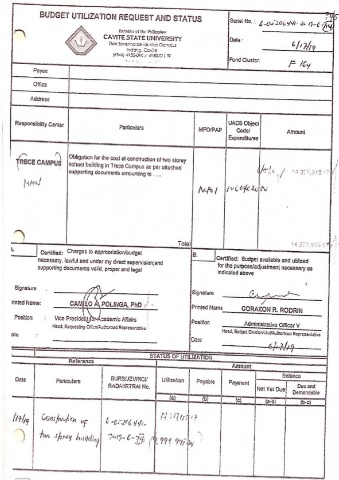 BUDGET UTILIZATION REQUEST AND STATUS
Republic of the Philippines
CAVITE STATE UNIVERSITY
Don Severino de las Alas Campus
Indang, Cavite
Serial No. :
Date :
6/17/19
Fund Cluster:
F 164
Payee
Office
Address
Responsibility Center
Particulars
MFO/PAP
UACS Object Code/ Expenditures
Amount
TRECE CAMPUS
Obligation for the cost of construction of two storey
school building in Trece Campus as per attached
supporting documents amounting to
Total
A.
Certified: Charges to appropriation/budget
necessary, lawful and under my direct supervision;and
supporting documents valid, proper and legal
Signature :
Printed Name:
CAMILO A. POLINGA, PhD
Position :
Vice President for Academic Affairs
Head, Requesting Office/Authorized Representative
Date :
B.
Certified: Budget available and utilized
for the purpose/adjustment necessary as
indicated above
Signature
Printed Name
CORAZON R. RODRIN
Position
Administrative Officer V
Head, Budget Division/Unit/Authorized Representative
Date
6/17/19
STATUS OF UTILIZATION
Reference
Amount
Date
Particulars
BURS/JEV/RCI/
RADAI/RTRAI No.
Utilization
Payable
Payment
Balance
Not Yet Due
Due and Demandable
(a)
(b)
(c)
(a-b)
(b-c)
Construction of
two storey building